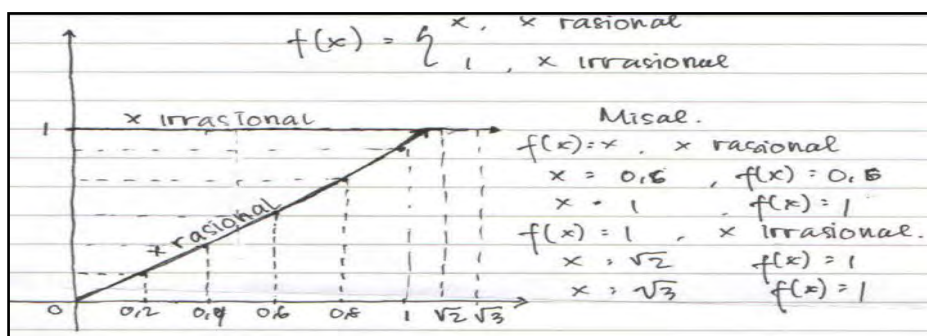 f(x) = { x, x rasional
1, x irrasional
1
x irrasional
x rasional
0 0,2 0,4 0,6 0,8 1 √2 √3
Misal.
f(x)=x, x rasional
x = 0,6, f(x) = 0,6
x = 1 f(x) = 1
f(x) = 1, x irrasional.
x = √2 f(x) = 1
x = √3 f(x) = 1